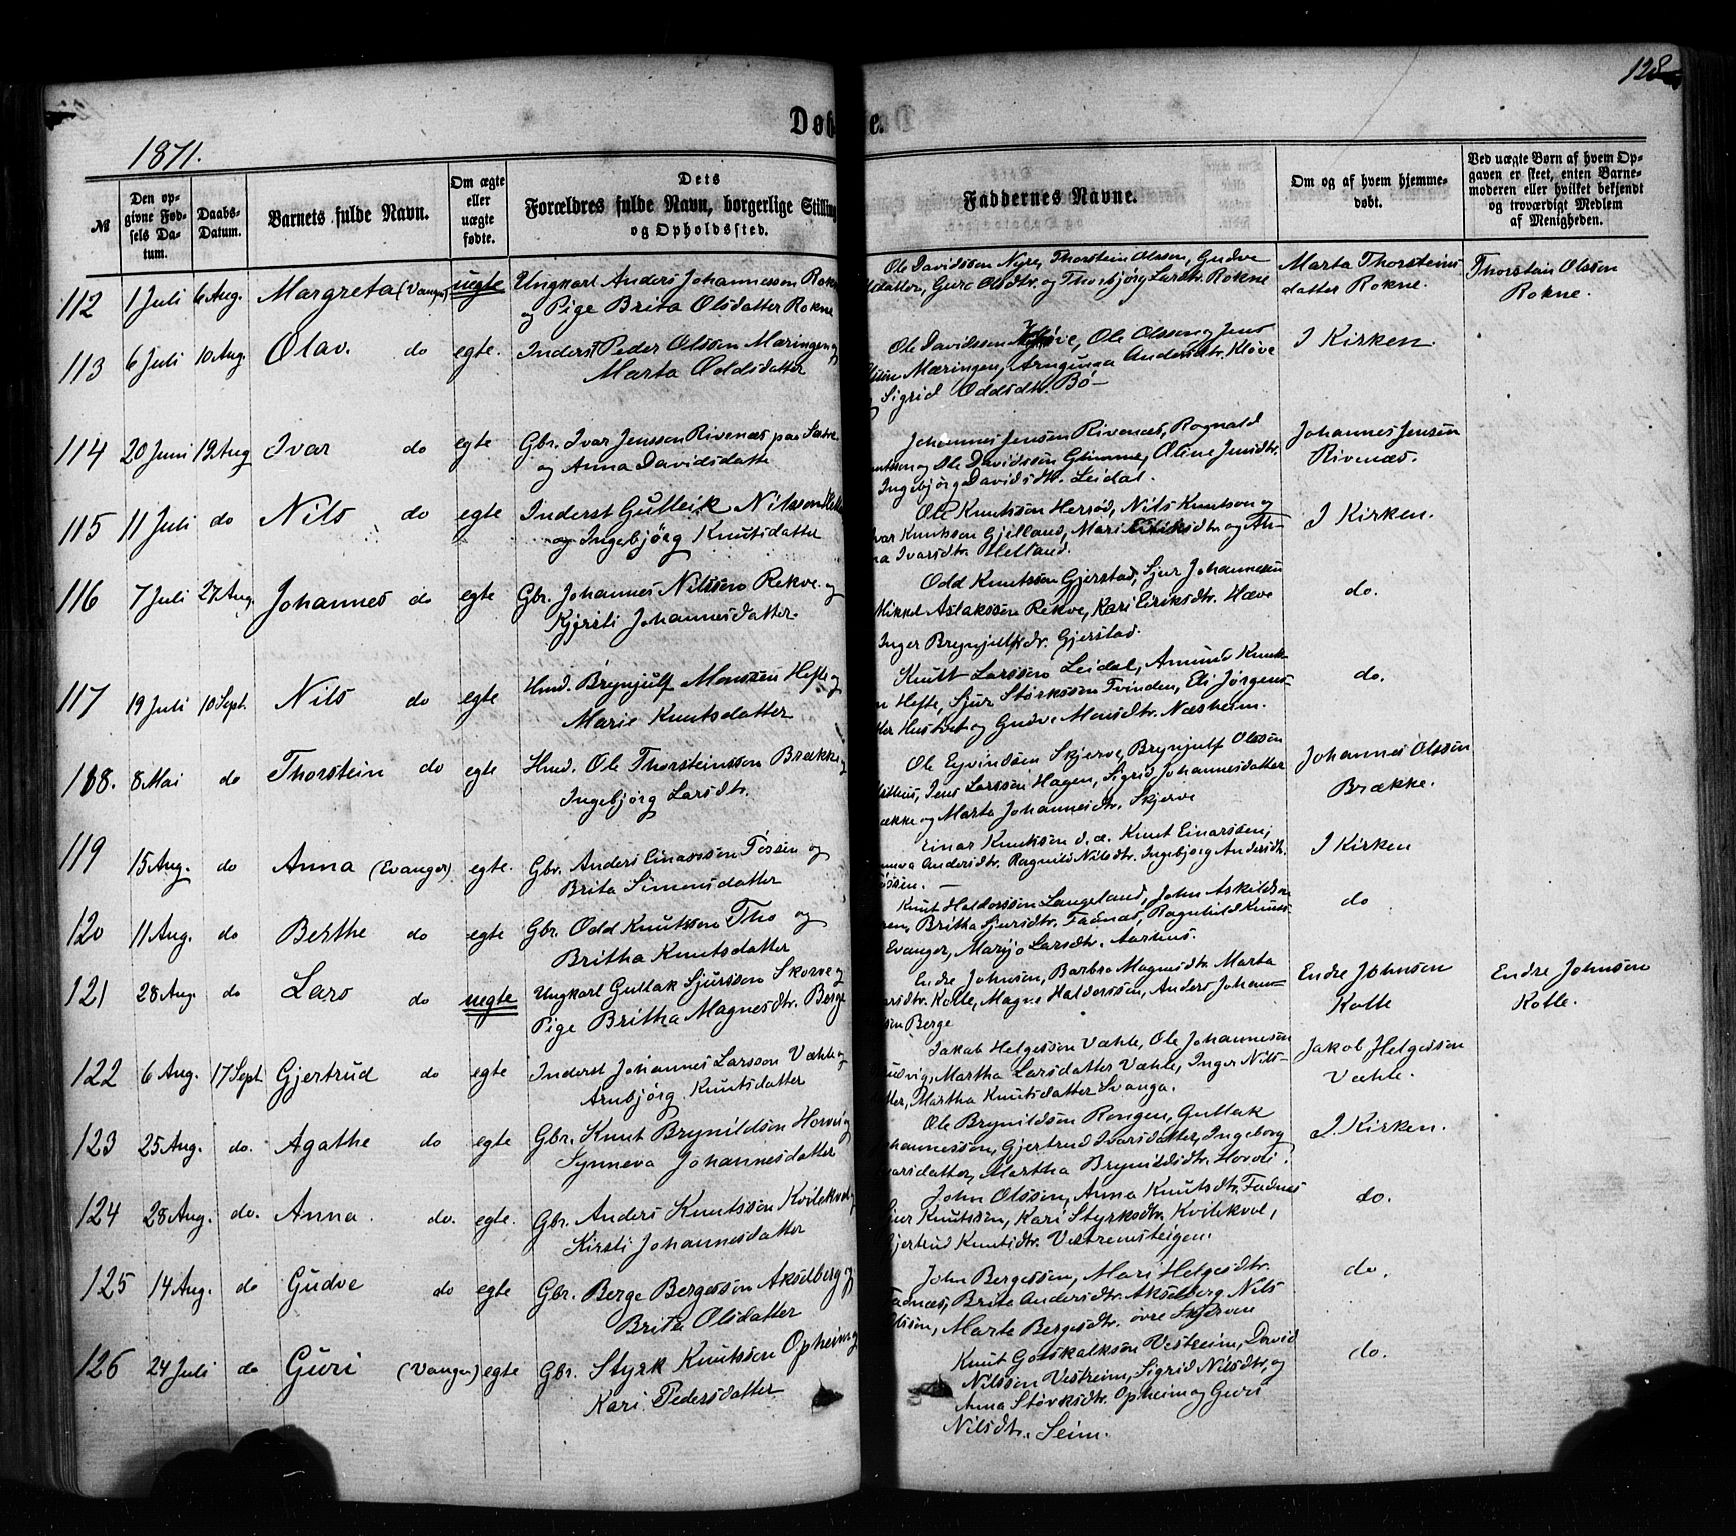 128
Døb
e.
1871.
№
Den op-
givne Fød-
sels Da-
tum.
Daabs-
Datum.
Barnets fulde Navn.
Om ægte
eller
uægte
fødte.
Dets
Forældres fulde Navn, borgerlige Stilling
og Opholdssted.
Faddernes Navne.
Om og af hvem hjemme-
døbt.
Ved uægte Børn af hvem Op-
gaven er skeet, enten Barne-
moderen eller hvilket bekjendt
og troværdigt Medlem
af Menigheden.
112 1 Juli 6 Aug. Margreta (Vanger) uegte Ungkarl Anders Johannesson
og Pige Brita Olsdatter Rokne
Ole Davidssøn Nyre, Thorstein Olsson, Gudve
datter, Guro Olsdtr. og Thorbjørg Larsdtr. Rokne
Marta Thorsteins
datter Rokne.
Thorstein Olsson
Rokne.
113 6 Juli 10 Aug. Olav. do egte. Inderst Peder Olssøn Mæringen og
Marta Oddsdatter
Ole Davidssøn Kløve, Ole Olsson og Jens
Mæringen, Arnguna Andersdtr. Kløve
Sigrid Oddsdtr. Bø
I Kirken.
114 20 Juni 19 Aug Ivar do egte Gbr. Ivar Jenssøn Rivenæs paa
og Anna Davidsdatte
Johannes Jensen Rivenæs, Rognald
og Ole Davidssøn Glimme, Oline Jensdtr.
Ingebjørg Davidsdtr. Leidal.
Johannes Jensen
Rivenæs.
115 11 Juli do Nils do egte Inderst Gulleik Nilsson
og Ingebjørg Knutsdatter
Ole Knutssøn Hersød, Nils Knutson og
Knutssøn Gjelland, Mari Eiriksdtr. og An-
na Ivarsdtr. Hetland.
I Kirken.
116 7 Juli 27 Aug. Johannes do egte Gbr. Johannes Nilssøn Rekve og
Kjersti Johannesdatter.
Odd Knutssøn Gjerstad, Sjur Johannessøn
Mikkel Aslakssøn Rekve, Kari Eiriksdtr. Hæve
Inger Brynjulfsdtr. Gjerstad.
do.
117 19 Juli 10 Sept. Nils do egte Hmd. Brynjulf Monssøn Hefte og
Marie Knutsdatter
Knut Larssøn Leidal, Amund Knut-
n Hefte, Sjur Størkssøn Tvinden, Eli Jørgens-
og Gudve Monsdtr. Næsheim.
do.
118. 8 Mai do Thorstein do egte Hmd. Ole Thorsteinsson Brække
Ingebjørg Larsdtr.
Ole Eyvindsøn Skjerve, Brynjulf Olssøn
Jens Larssøn Hagen, Sigrid Johannesdatter
ække og Marta Johannesdtr. Skjerve
Johannes Olssøn
Brække.
119 15 Aug. do Anna (Evanger) egte. Gbr. Anders Einarssøn Førsen og
Brita Simonsdatter
Einar Knutssøn d.æ. Knut Einarssøn,
Andersdtr. Ragnild Nilsdtr. Ingebjørg Andersdtr.
I Kirken
120 11 Aug. do Berthe do egte Gbr. Odd Knutssøn Tho og
Britha Knutsdatter
Knut Haldorssøn Langeland, John Askildsøn
Britha Sjursdtr. Fadnæs, Ragnhild Knuts-
Evanger, Marijo Larsdtr. Aarhus.
do
121 28 Aug. do Lars do uegte Ungkarl Gullak Sjurssøn Skorve og
Pige Britha Magnesdtr. Berge
Endre Johnsen, Barbro Magnesdtr. Marta
Kolle, Magne Haldorssøn, Anders Johan-
Berge
Endre Johnson
Kolle
Endre Johnson
Kolle.
122 6 Aug. 17 Sept Gjertrud do egte Inderst Johannes Larsson Væhle og
Arnbjørg Knutsdatter
Jakob Helgessøn Væhle, Ole Johannessøn
Martha Larsdatter Væhle, Inger Nils-
Martha Knutsdatter Svanga.
Jakob Helgesson
Væhle.
123 25 Aug. do. Agathe do egte Gbr. Knut Brynildsøn Horvei og
Synneva Johannesdatter
Ole Brynildsøn Rongen, Gullak
ohannessøn, Gjertrud Ivarsdatter, Ingeborg
Martha Brynildsdtr. Horvei.
I Kirken.
124 28 Aug. do. Anna. do. egte. Gbr. Anders Knutssøn Kvilekval
Kirsti Johannesdatter
John Olssøn, Anna Knutsdtr. Fadnes
Sjur Knutssøn, Kari Styrksdtr. Kvilekval,
Gjertrud Knutsdtr. Vestremsteigen.
do.
125 14 Aug. do Gudve do egte Gbr. Berge Bergesson Akselberg og
Brita Olsdatter
John Bergessøn, Mari Helgesdtr.
Fadnæs, Brita Andersdtr. Akselberg Nils
Marta Bergesdtr. øvre Skjerven
do.
126 24 Juli do Guri (Vanger) egte Gbr. Styrk Knutsson Opheim og
Kari Pedersdatter
Knut Gotskalksøn Vestreim, David
Nilssøn Vestreim, Sigrid Nilsdtr, og
Anna Størksdtr. Opheim og Guri
Nilsdtr. Seim.
do.